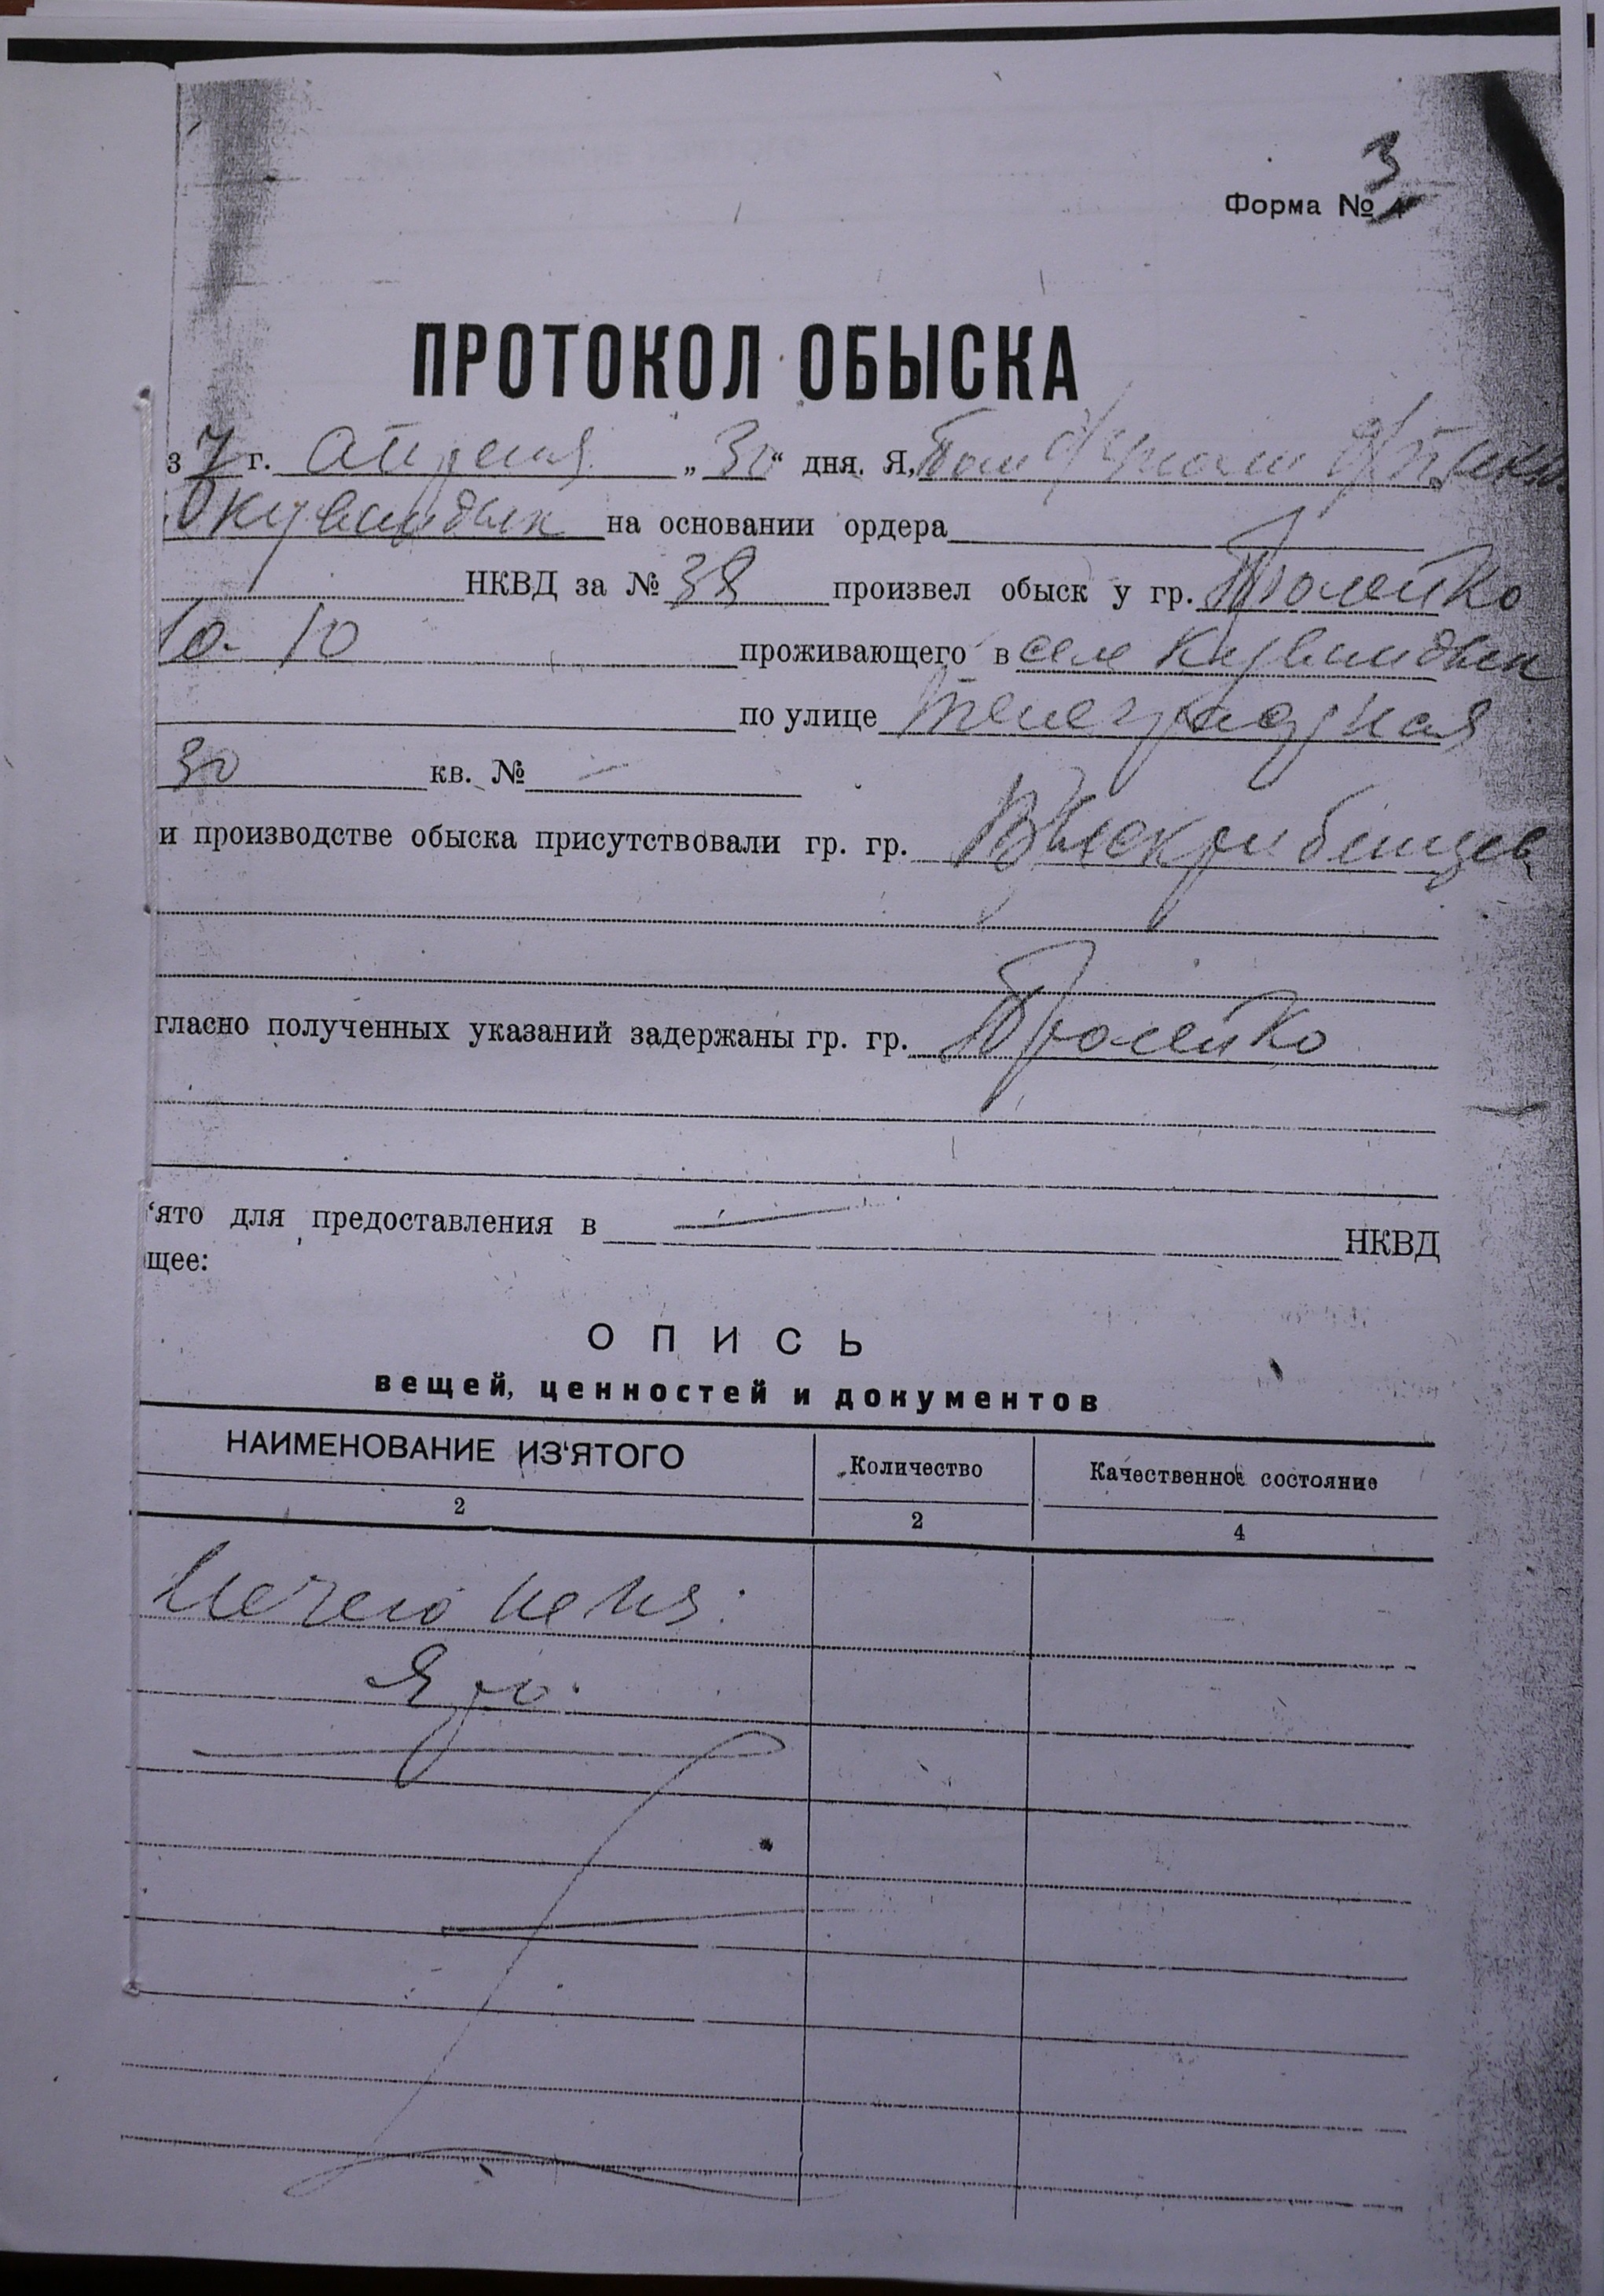 3
Форма №
ПРОТОКОЛ ОБЫСКА
з7 г. апреля „30“ дня. Я,
на основании ордера
НКВД за № 38 произвел обыск у гр. Пролейко
Ю. Ю проживающего в селе Кувандык
по улице
30 кв. № —
и производстве обыска присутствовали гр. гр. Выскрибенцев
гласно полученных указаний задержаны гр. гр. Пролейко
‘ято для предоставления в — НКВД
щее:
ОПИСЬ
вещей, ценностей и документов
НАИМЕНОВАНИЕ ИЗ‘ЯТОГО Количество Качественное состояние
2 2 4